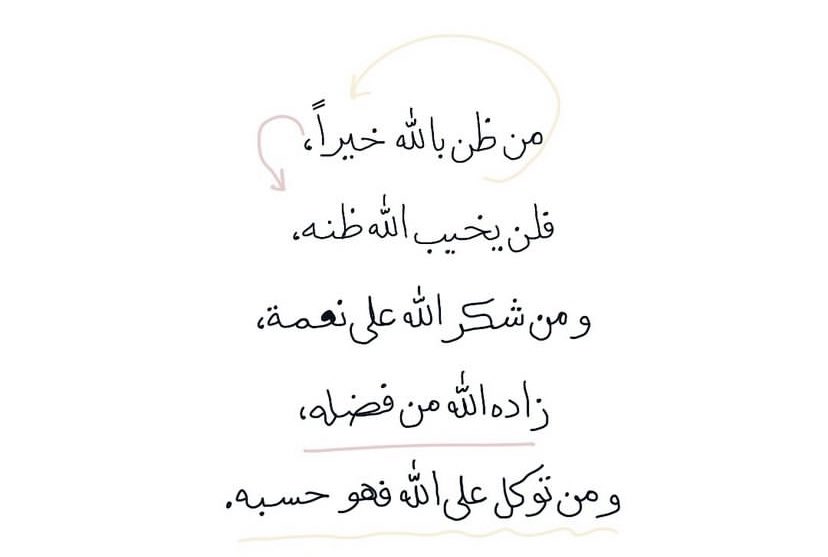 من ظن بالله خيراً،
فلن يخيب الله ظنه،
و من شكر الله على نعمة،
زاده الله من فضله،
و من توكل على الله فهو حسبه.